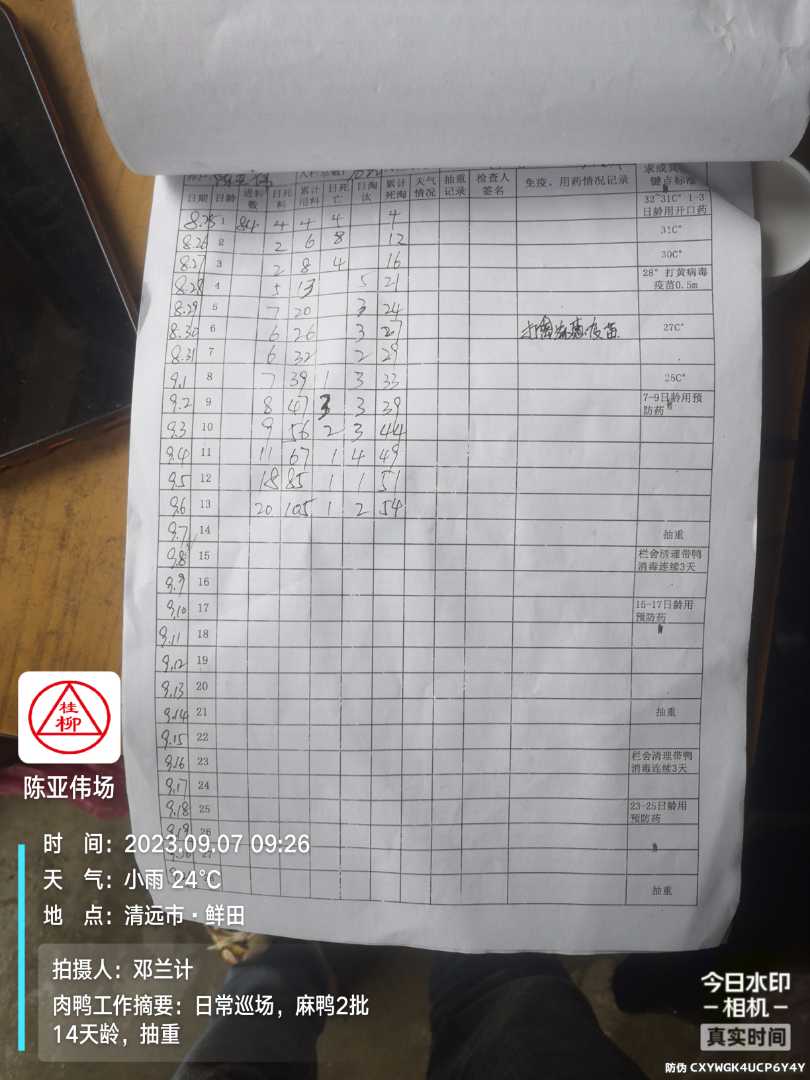 求或其
键点标准
日期 日龄 进料数 日死料 累计用料 日死亡 日淘汰 累计死淘 天气情况 抽重记录 检查人签名 免疫、用药情况记录
8.25 1 84 4 4 4 4 32-31C° 1-3日龄用开口药
8.26 2 2 6 8 12 31C°
8.27 3 2 8 4 16 30C°
8.28 4 5 13 5 21 28° 打黄病毒疫苗0.5m
8.29 5 7 20 3 24
8.30 6 6 26 3 27 27C°
8.31 7 6 32 2 29
9.1 8 7 39 1 3 33 25C°
9.2 9 8 47 3 3 39 7-9日龄用预防药
9.3 10 9 56 2 3 44
9.4 11 11 67 1 4 49
9.5 12 18 85 1 1 51
9.6 13 20 105 1 2 54
9.7 14 抽重
9.8 15 栏舍清理带鸭消毒连续3天
9.9 16
9.10 17 15-17日龄用预防药
9.11 18
9.12 19
9.13 20
9.14 21 抽重
9.15 22
9.16 23 栏舍清理带鸭消毒连续3天
9.17 24
9.18 25 23-25日龄用预防药
9.19 26
抽重
桂柳
陈亚伟场
时 间：2023.09.07 09:26
天 气：小雨 24℃
地 点：清远市·鲜田
拍摄人：邓兰计
肉鸭工作摘要：日常巡场，麻鸭2批
14天龄，抽重
今日水印
相机
真实时间
防伪 CXYWGK4UCP6Y4Y